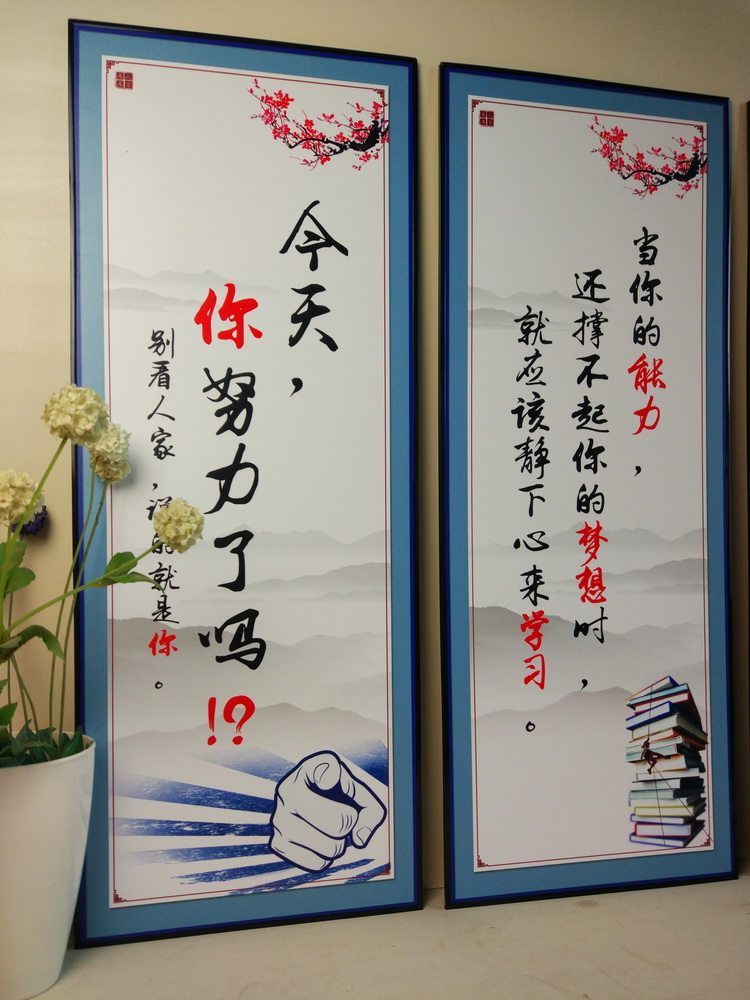 今天，
你努力了吗!?
别看人家，说的就是你。
当你的能力，
还撑不起你的梦想时，
就应该静下心来学习。